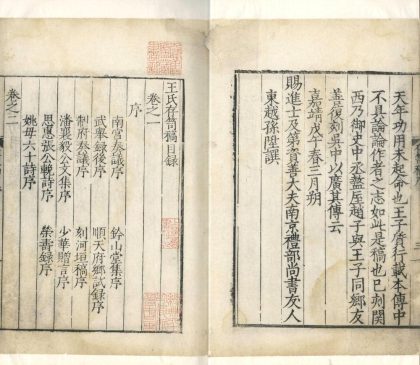 天年功用未起命也王子行載本傳中
不具論論作者之志如此是稿也已刻關
西乃御史中丞盩厔趙子與王子同鄉友
善復刻吳中以廣其傳云
嘉靖戊午春三月朔
賜進士及第資善大夫南京禮部尚書友人
東越孫陞譔
王氏存笥稿目録
卷之一
序
南宮奏議序 鈐山堂集序
武舉録後序 順天府鄉試録序
制府奏議序 刻河垣稿序
潘襄毅公文集序 少華贈言序
思惠張公輓詩序 榮壽録序
姚母六十詩序
卷之二